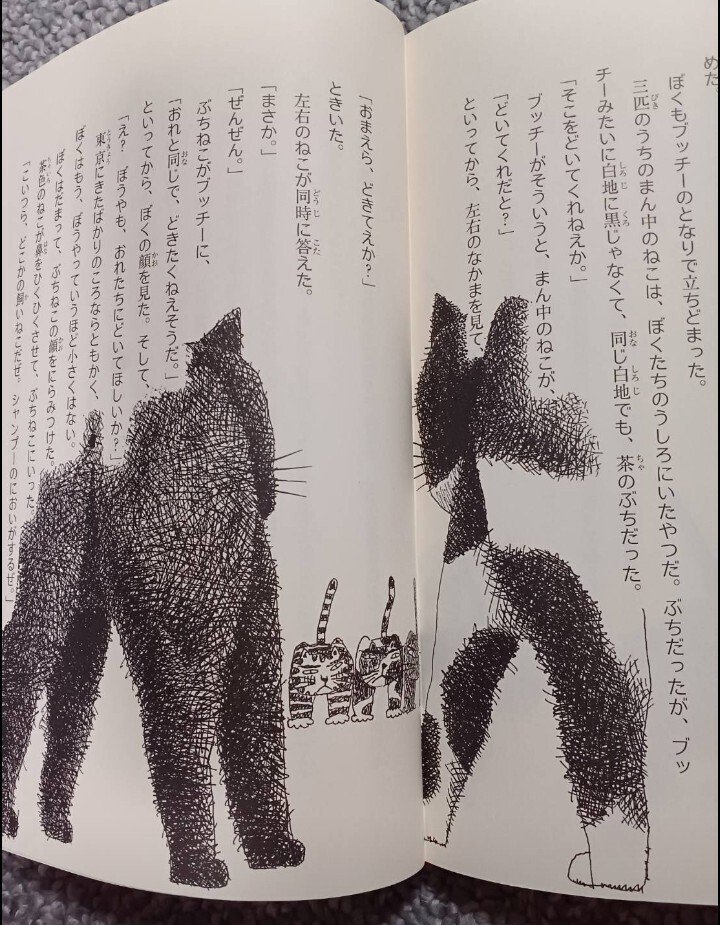 めた。
ぼくもブッチーのとなりで立ちどまった。
三匹のうちのまん中のねこは、ぼくたちのうしろにいたやつだ。ぶちだったが、ブッ
チーみたいに白地に黒じゃなくて、同じ白地でも、茶のぶちだった。
「そこをどいてくれねえか。」
ブッチーがそういうと、まん中のねこが、
「どいてくれだと？」
といってから、左右のなかまを見て、
「おまえら、どきてえか？」
ときいた。
左右のねこが同時に答えた。
「まさか。」
「ぜんぜん。」
ぶちねこがブッチーに、
「おれと同じで、どきたくねえそうだ。」
といってから、ぼくの顔を見た。そして、
「え？　ぼうやも、おれたちにどいてほしいか？」
東京にきたばかりのころならともかく、
ぼくはもう、ぼうやっていうほど小さくはない。
ぼくはだまって、ぶちねこの顔をにらみつけた。
茶色のねこが鼻をひくひくさせて、ぶちねこにいった。
「こいつら、どこかの飼いねこだぜ。シャンプーのにおいがするぜ。」